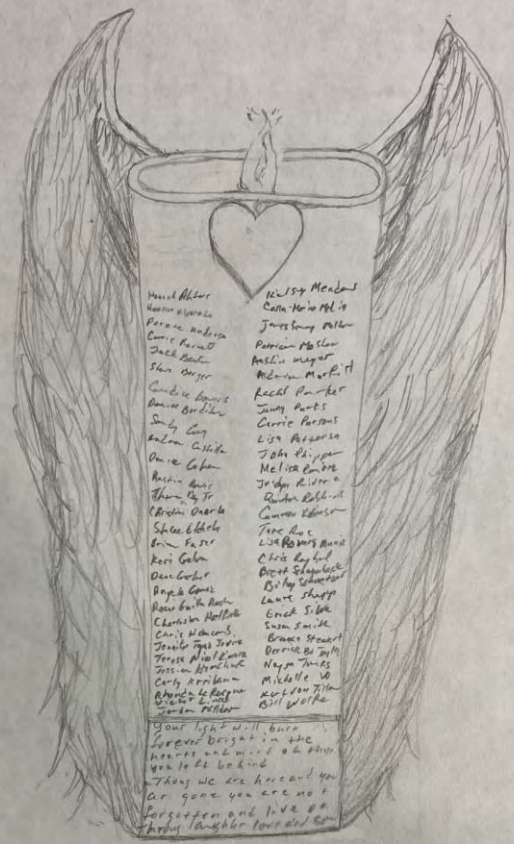 Hannah Ahlers
Heather Alvarado
Carrie Barnett
Jack Beaton
Steve Berger
Candice Bowers
Denise Burditus
Sandy Casey
Andrea Castilla
Denise Cohen
Austin Davis
Thomas Day Jr
Christiana Duarte
Stacee Etcheber
Brian Fraser
Keri Galvan
Dana Gardner
Angela Gomez
Rocio Guillen Rocha
Charleston Hartfield
Chris Hazencomb
Jennifer Topaz Irvine
Teresa Nicol Kimura
Jessica Klymchuk
Carly Kreibaum
Rhonda LeRocque
Victor Link
Jordan McIldoon
Kelsey Meadows
Calla-Marie Medig
James Sonny Melton
Patricia Mestas
Austin Meyer
Adrian Murfitt
Rachel Parker
Jenny Parks
Carrie Parsons
Lisa Patterson
John Phippen
Melissa Ramirez
Jordyn Rivera
Quinton Robbins
Cameron Robinson
Tara Roe
Lisa Romero Muniz
Chris Roybal
Brett Schwanbeck
Bailey Schweitzer
Laura Shipp
Erick Silva
Susan Smith
Brennan Stewart
Derrick Bo Taylor
Neysa Tonks
Michelle Vo
Kurt Von Tillow
Bill Wolfe
Your light will burn
forever bright in the
hearts and mind of those
you left behind
Thoug we are here and you
ar gone you are not
forgotten and live on
throug laughter love and